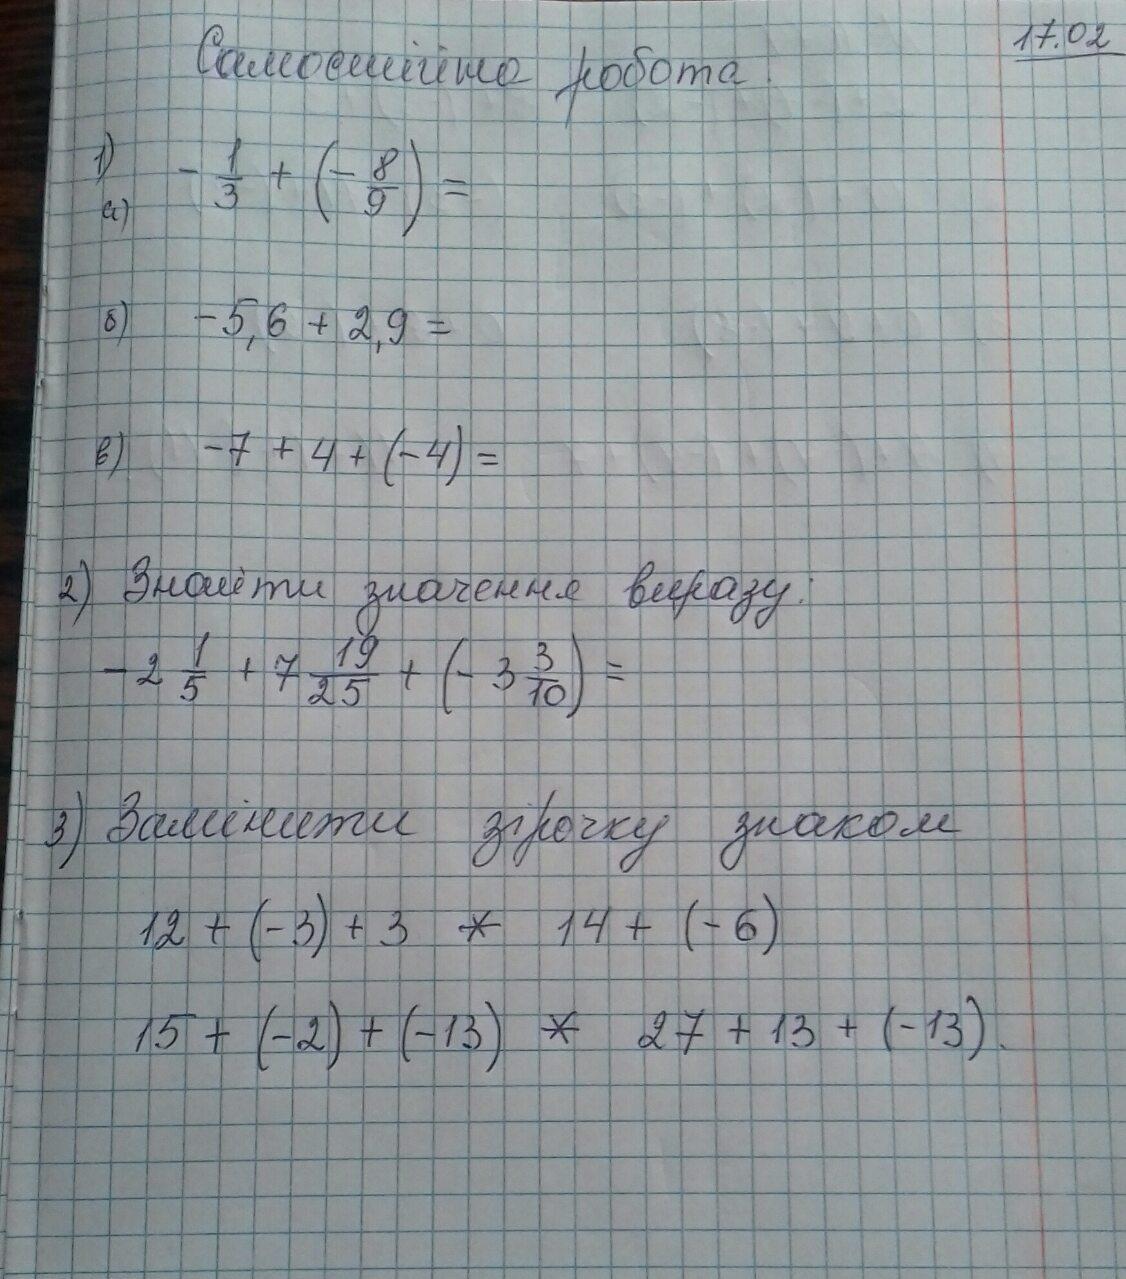 17.02
Самостійна робота.
1)
а) - 1/3 + (- 8/9) =
б) -5,6 + 2,9 =
в) -7 + 4 + (-4) =
2) Знайти значення виразу:
-2 1/5 + 7 19/25 + (- 3 3/10) =
3) Замінити зірочку знаком
12 + (-3) + 3 * 14 + (-6)
15 + (-2) + (-13) * 27 + 13 + (-13).